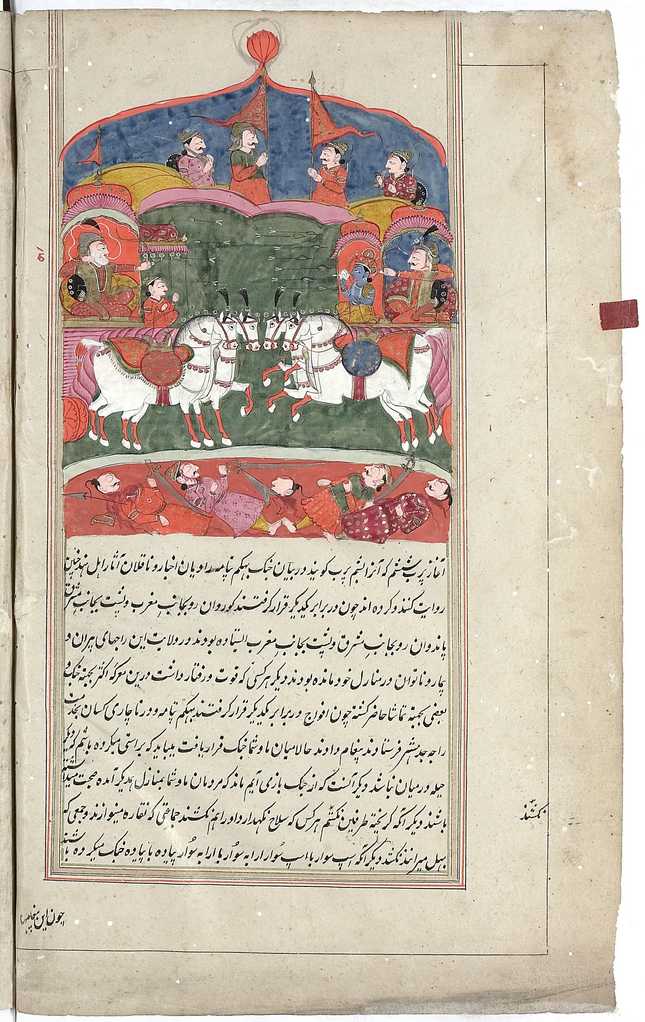 آغاز پرب ششم که آنرا بهیکم پرب گویند در بیان جنگ بهیکم پتامه راویان اخبار و ناقلان آثار اهل هند چنین
روایت کنند و کرده اند چون در برابر یکدیگر قرار گرفتند کوروان رو بجانب مغرب و پشت بجانب مشرق
پاندوان رو بجانب مشرق و پشت بجانب مغرب ایستاده بودند در ولایت این راجهای پیران و
بیمار و ناتوان در منازل خود مانده بودند دیگر هر کسی که قوت و رفتار داشت درین معرکه اکثر بجهة جنگ و
بعضی بجهة تماشا حاضر گشته چون افواج در برابر یکدیگر قرار گرفتند بهیکم پتامه و درناچارج کسان بخدمت
راجه جدشتر فرستادند پیغام دادند حالا میان ما و شما جنگ قرار یافت میباید که براستی میکرده باشیم و مکر
حیله درمیان نباشد دیگر آنست که از جنگ باز می آیم ماند که مردمان ما و شما بمنازل یکدیگر آمده صحبت میداشته
باشند دیگر آنکه گریخته طرفین نکشیم هر کس که سلاح نگهدارد او را هم نکشند جماعتی که نقاره مینوازند و جمعی که
بهل میرانند نکشند دیگر آنکه اسپ سوار با اسپ سوار ارابه سوار با ارابه سوار پیاده با پیاده جنگ میکرده باشند
نکشند
چون این